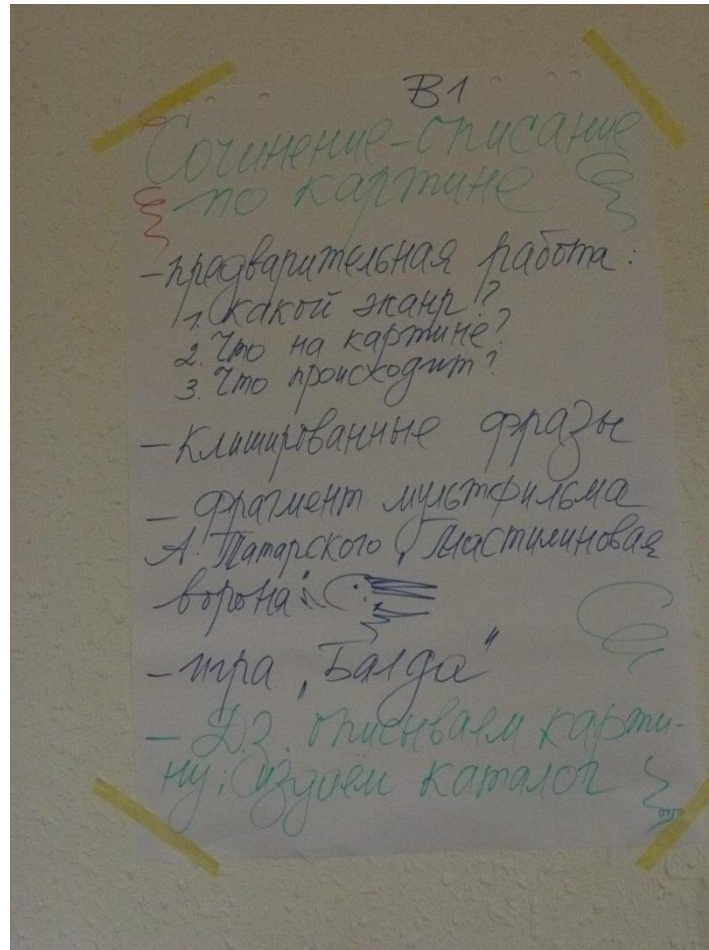 B1
Сочинение-описание
по картине
– предварительная работа:
1. Какой жанр?
2. Что на картине?
3. Что происходит?
– клишированные фразы
– фрагмент мультфильма
А. Татарского „Пластилиновая
ворона"
– игра „Балда"
– Д.З. описываем карти-
ну, создаём каталог